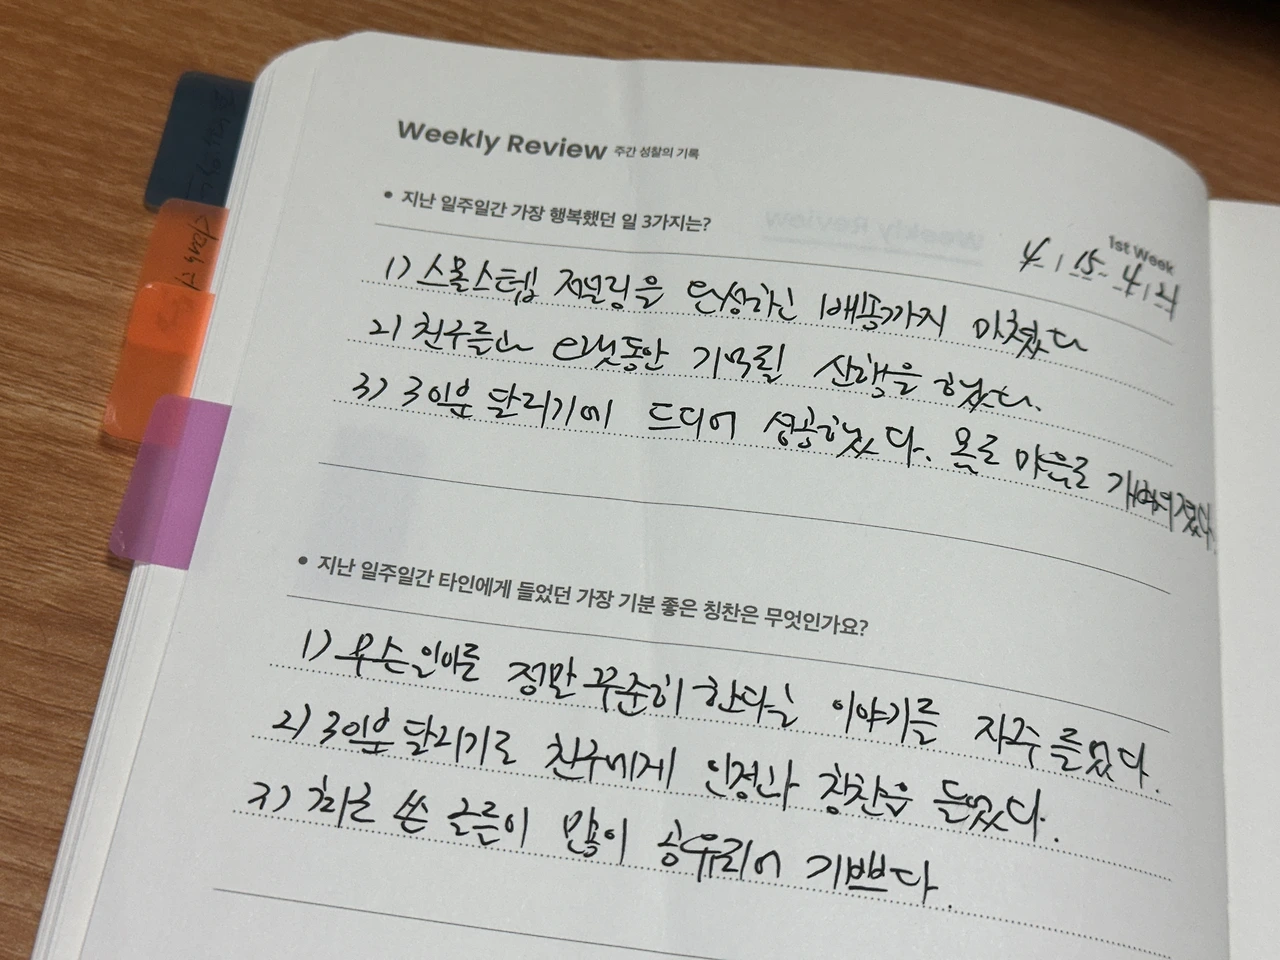 Weekly Review 주간 성찰의 기록
1st Week
4. 15 - 4. 21
• 지난 일주일간 가장 행복했던 일 3가지는?
1) 스몰스텝 저널링을 완성하고 배송까지 마쳤다
2) 친구들과 오랫동안 기억될 산행을 했다.
3) 30분 달리기에 드디어 성공했다. 몸도 마음도
• 지난 일주일간 타인에게 들었던 가장 기분 좋은 칭찬은 무엇인가요?
1) 무슨 일이든 정말 꾸준히 한다는 이야기를 자주 들었다.
2) 30분 달리기로 친구에게 인정과 칭찬을 들었다.
3) 쓴 글들이 많이 공유되어 기쁘다.